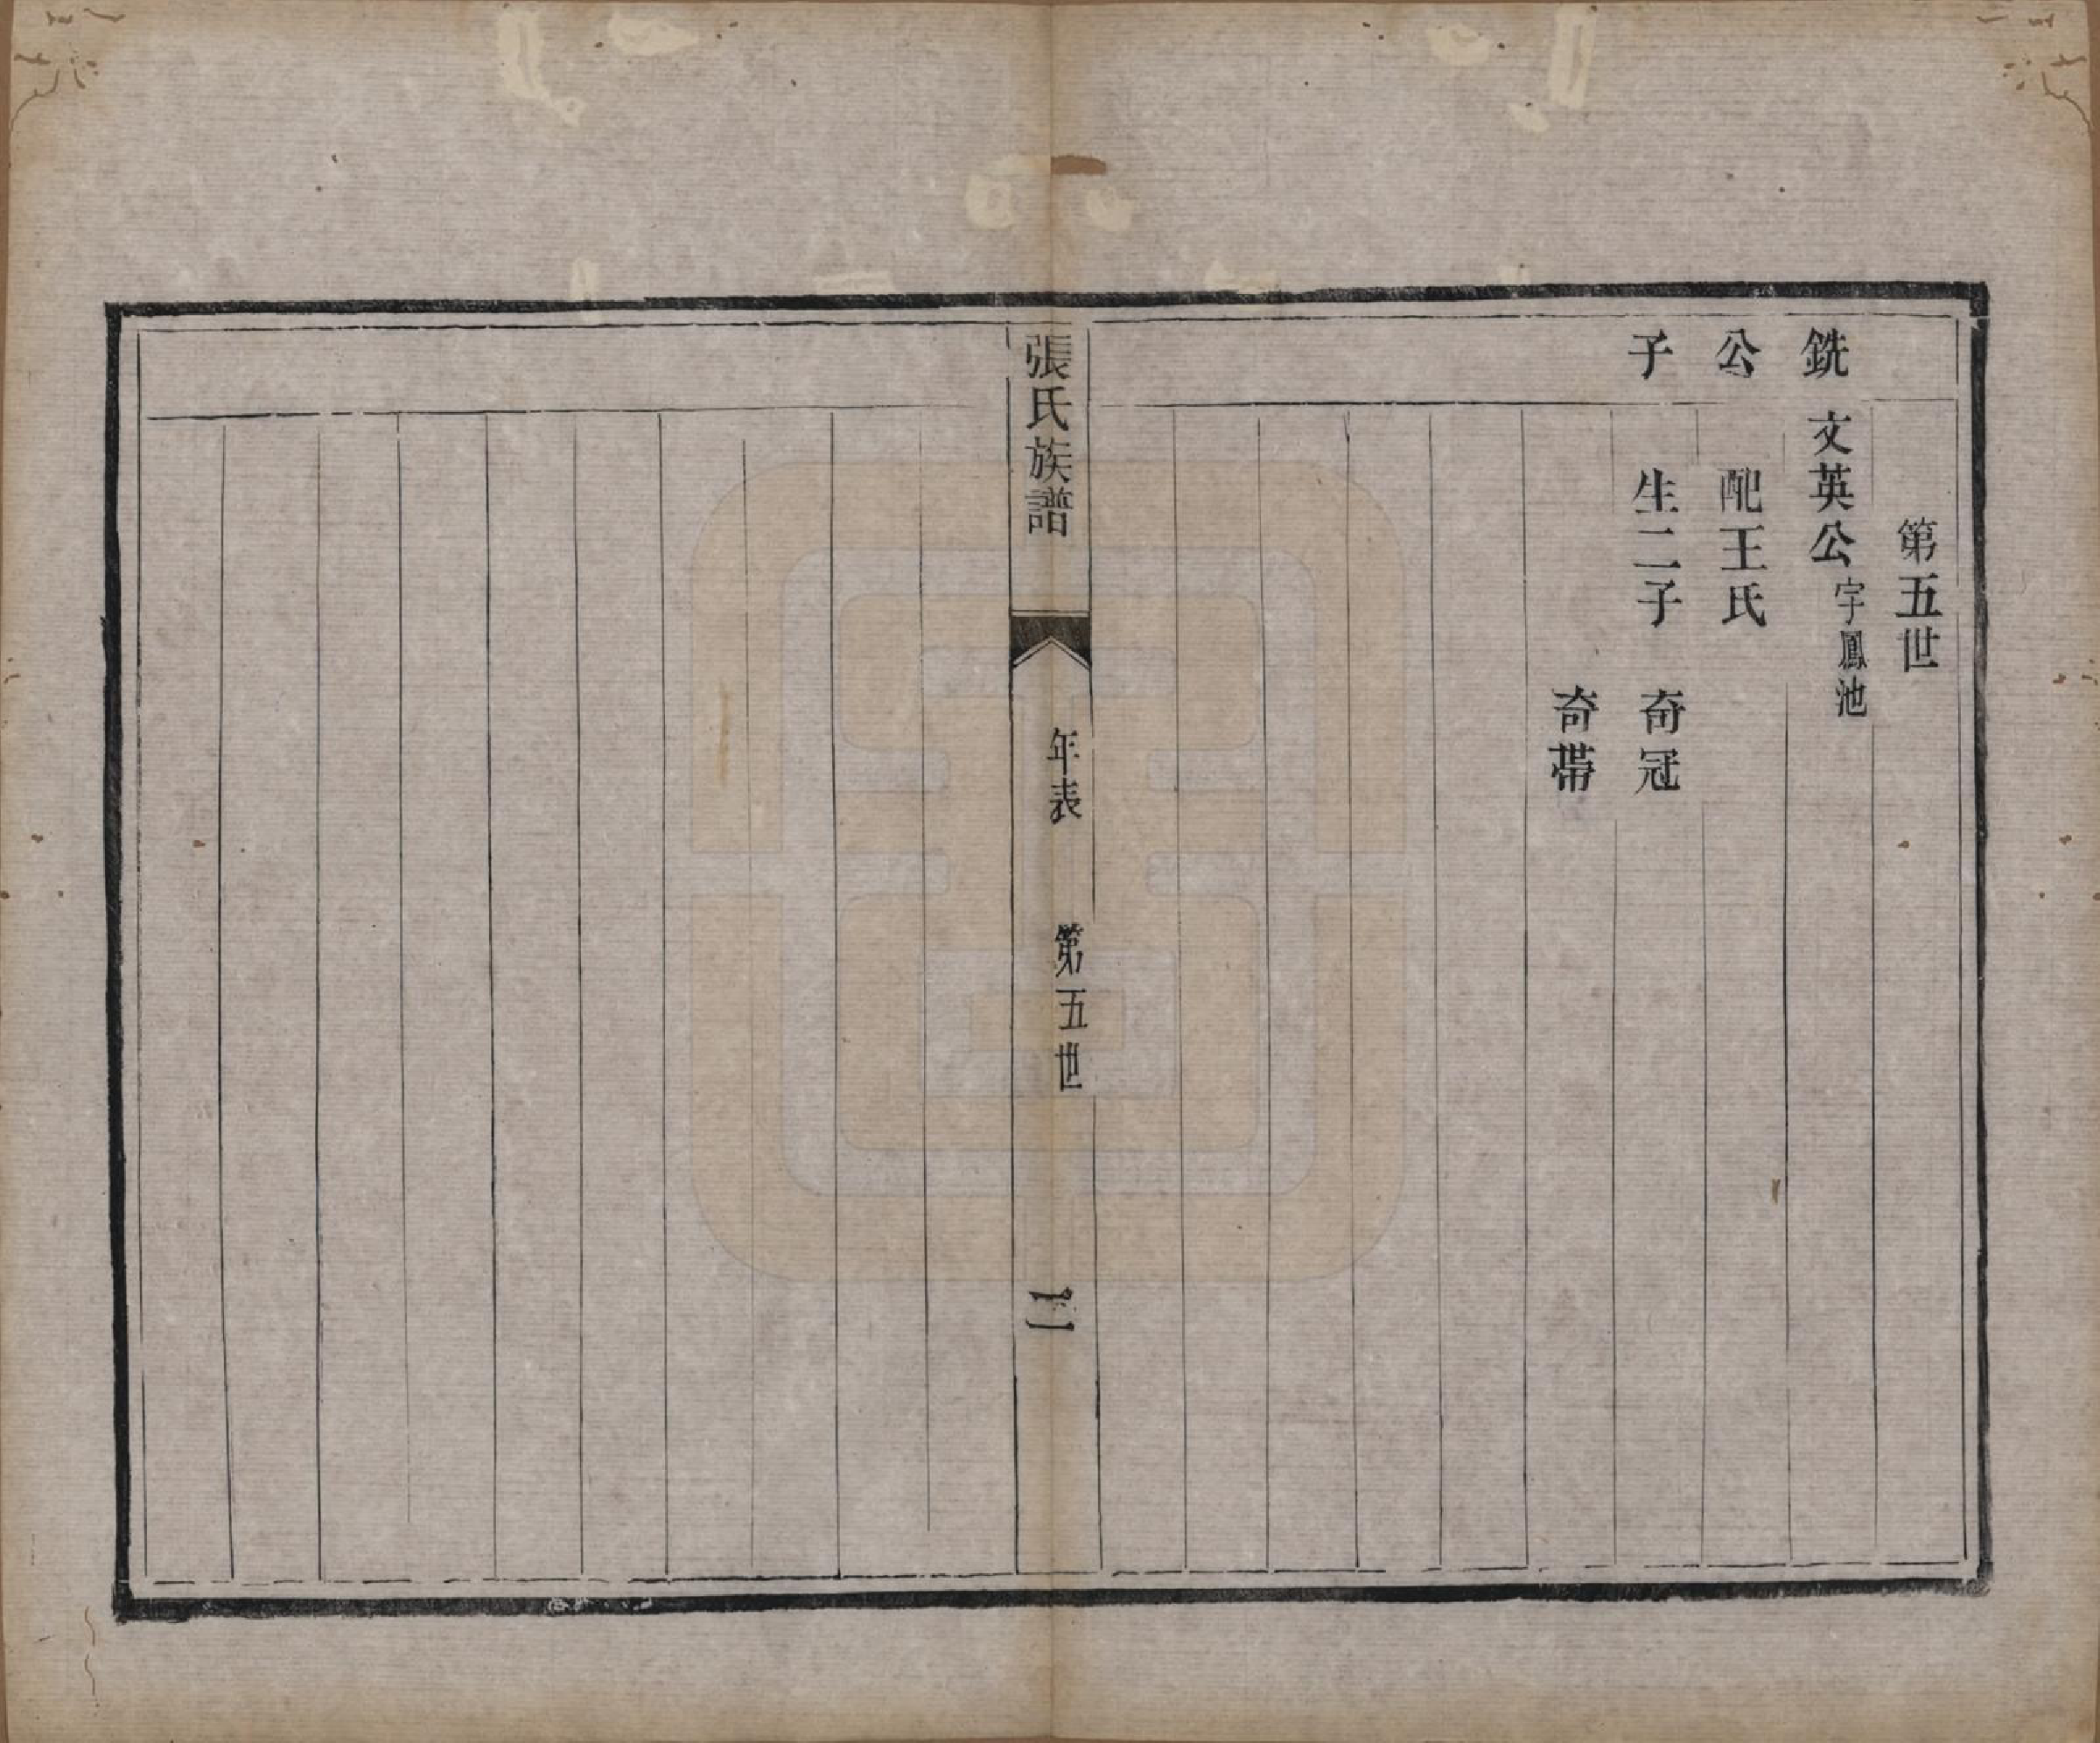 第五世
銑公子
文英公字鳳池
配王氏
生二子 奇冠
奇帶
張氏族譜 年表 第五世 二